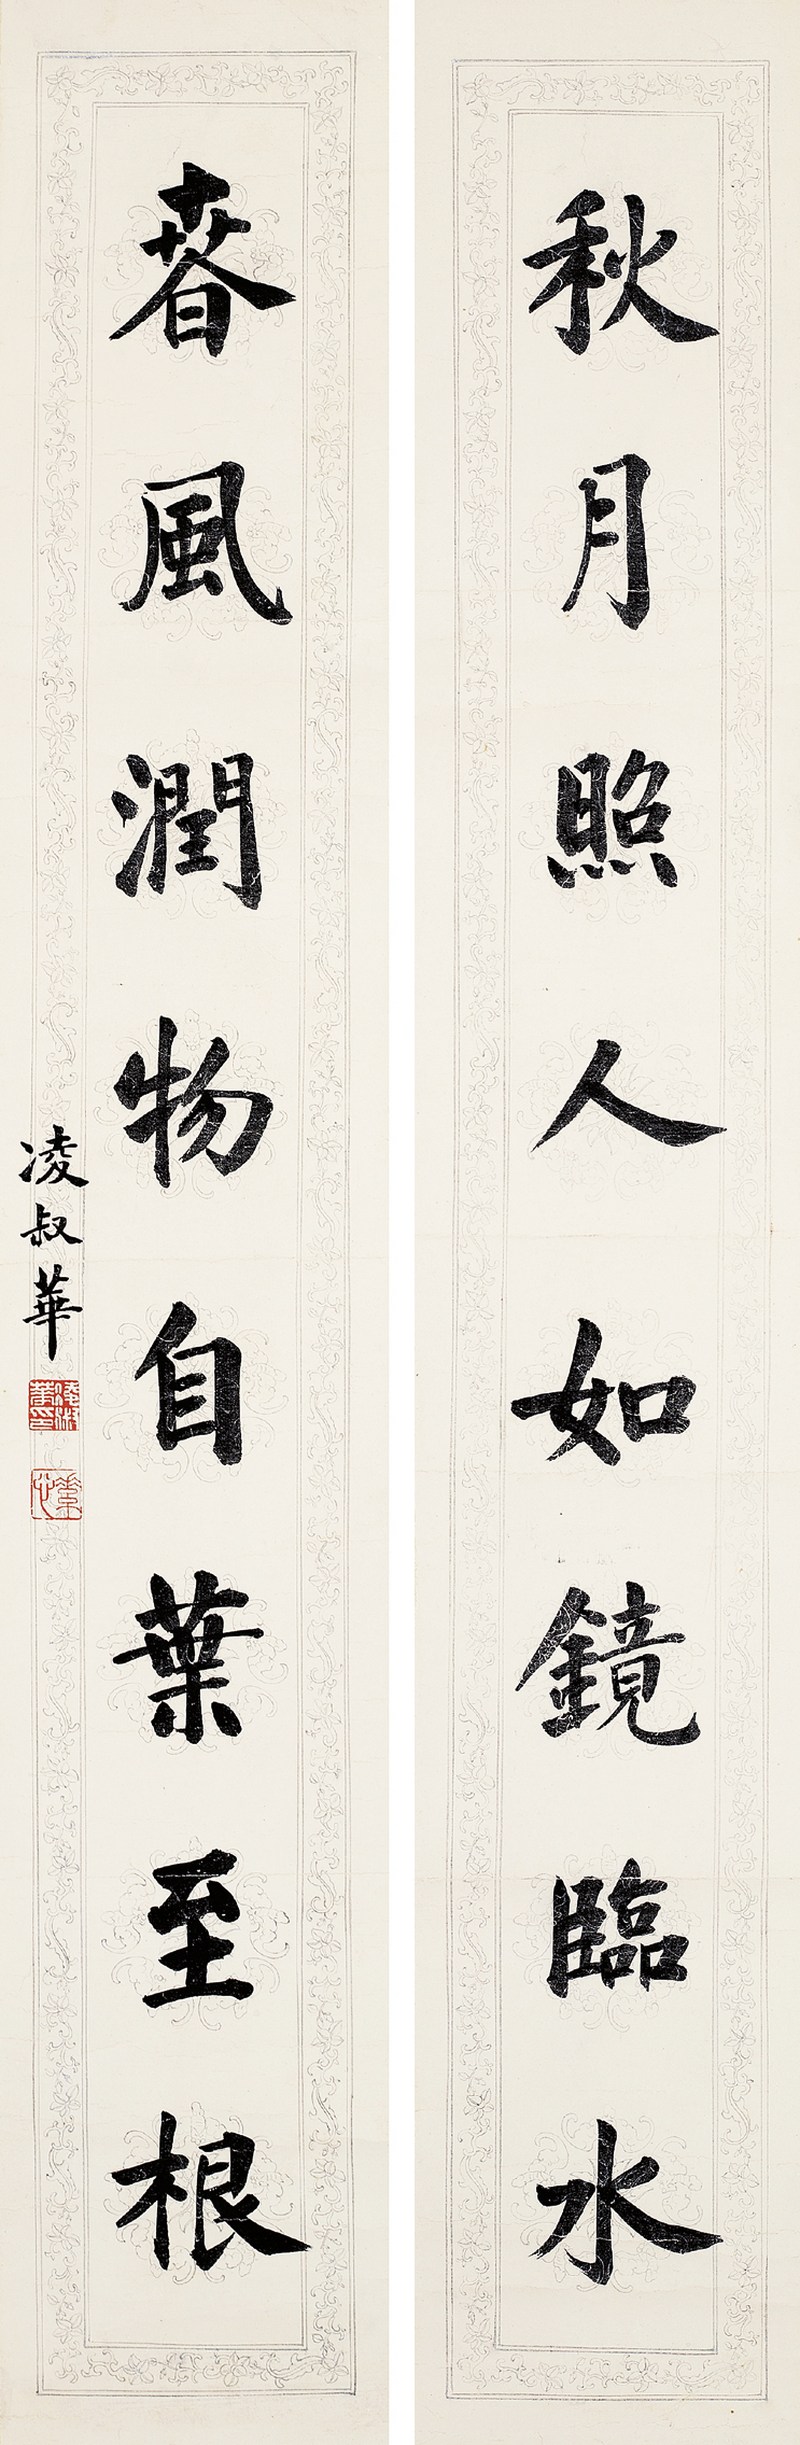 秋月照人如鏡臨水
春風潤物自葉至根
凌叔華